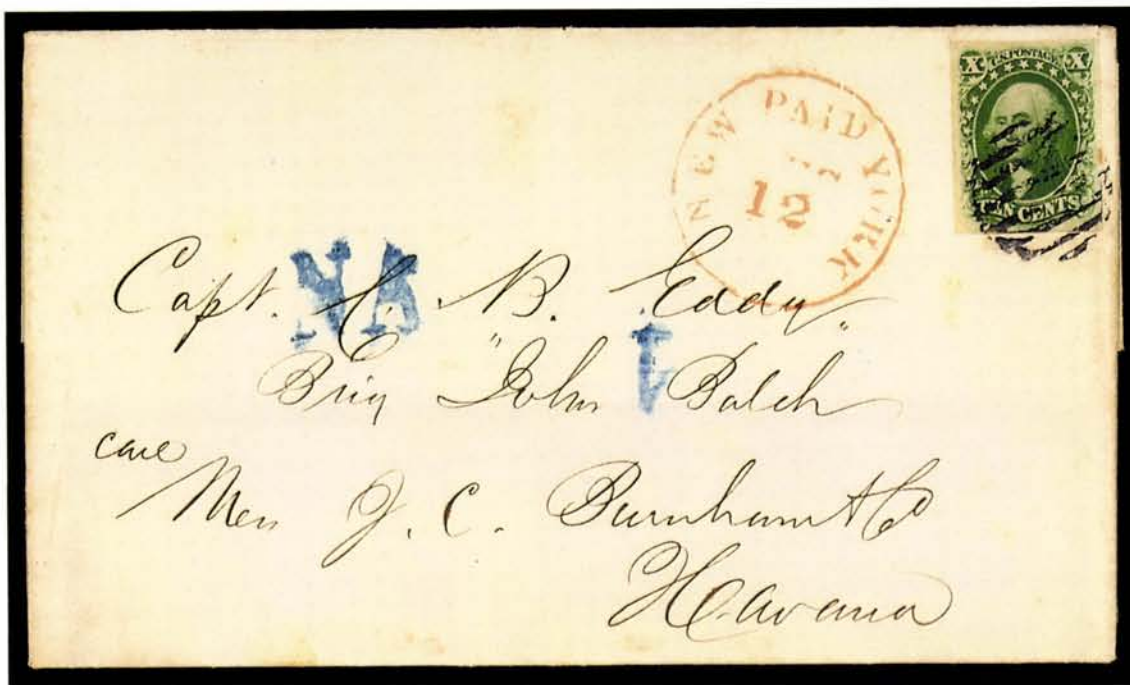 X U.S. POSTAGE X
TEN CENTS
NEW PAID YORK
12
NA
1
Capt. C. B. Eddy
Brig "John Balch"
care
Mess J. C. Burnham & Co
Havana